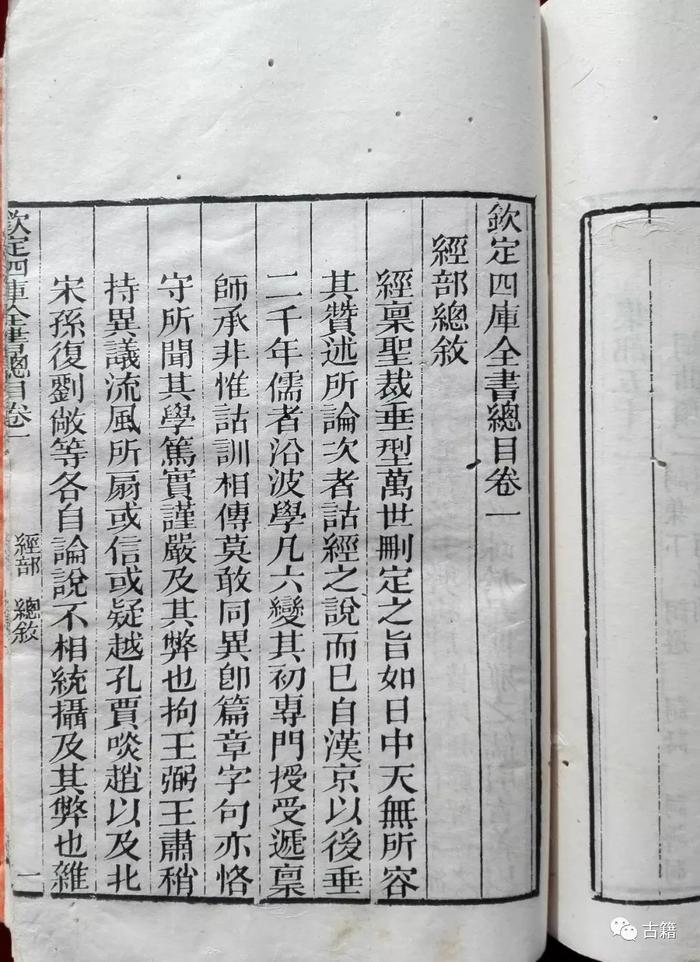 欽定四庫全書總目卷一
經部總敘
經稟聖裁垂型萬世刪定之旨如日中天無所容
其贊述所論次者詁經之說而已自漢京以後垂
二千年儒者沿波學凡六變其初專門授受遞稟
師承非惟詁訓相傳莫敢同異卽篇章字句亦恪
守所聞其學篤實謹嚴及其弊也拘王弼王肅稍
持異議流風所扇或信或疑越孔賈啖趙以及北
宋孫復劉敞等各自論說不相統攝及其弊也雜
欽定四庫全書總目卷一
經部 總敘
一
古籍